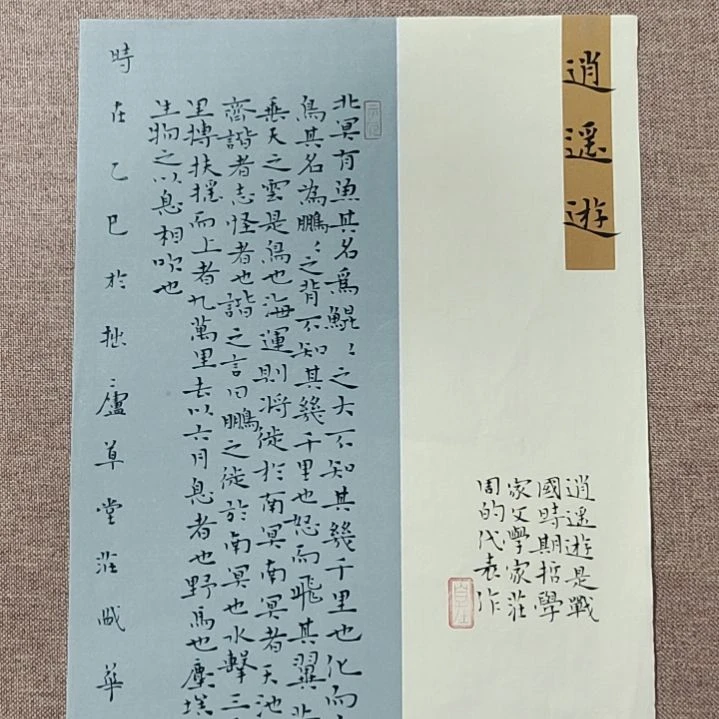 逍遥遊
逍遥遊是戰
國時期哲學
家文學家莊
周的代表作
北冥有魚其名為鯤〻之大不知其幾千里也化而
鳥其名為鵬〻之背不知其幾千里也怒而飛其翼若
垂天之雲是鳥也海運則將徙於南冥南冥者天池
齊諧者志怪者也諧之言曰鵬之徙於南冥也水擊三
里摶扶搖而上者九萬里去以六月息者也野馬也塵埃
生物之以息相吹也
時在乙巳於拙廬草堂莊華